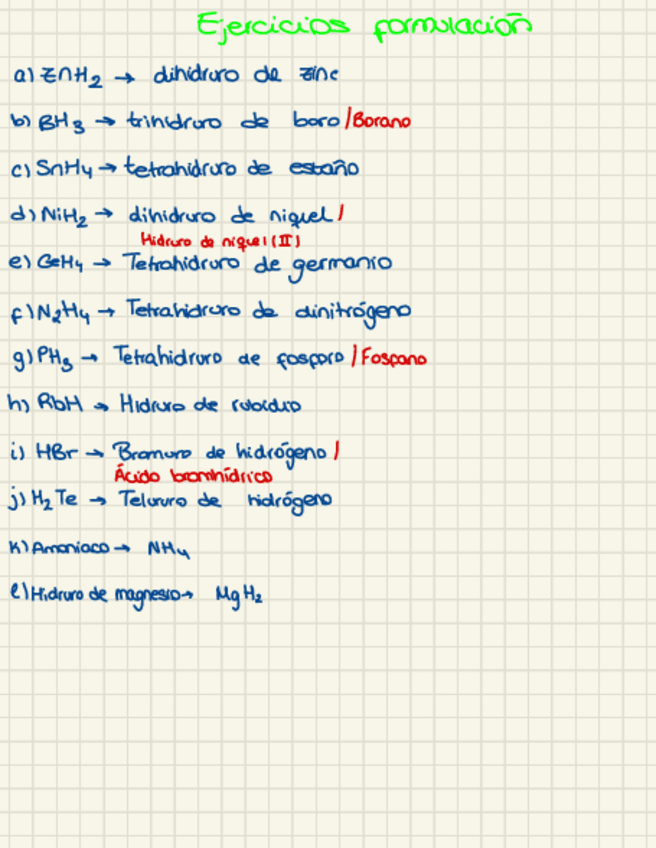 Ejercicios formulación
a) ZnH₂ → dihidruro de zinc
b) BH₃ → trihidruro de boro / Borano
c) SnH₄ → tetrahidruro de estaño
d) NiH₂ → dihidruro de niquel /
Hidruro de niquel (II)
e) GeH₄ → Tetrahidruro de germanio
f) N₂H₄ → Tetrahidruro de dinitrógeno
g) PH₃ → Tetrahidruro de fosforo / Fosfano
h) RbH → Hidruro de rubidio
i) HBr → Bromuro de hidrógeno /
Ácido bromhídrico
j) H₂Te → Telururo de hidrógeno
k) Amoniaco → NH₄
l) Hidruro de magnesio → MgH₂